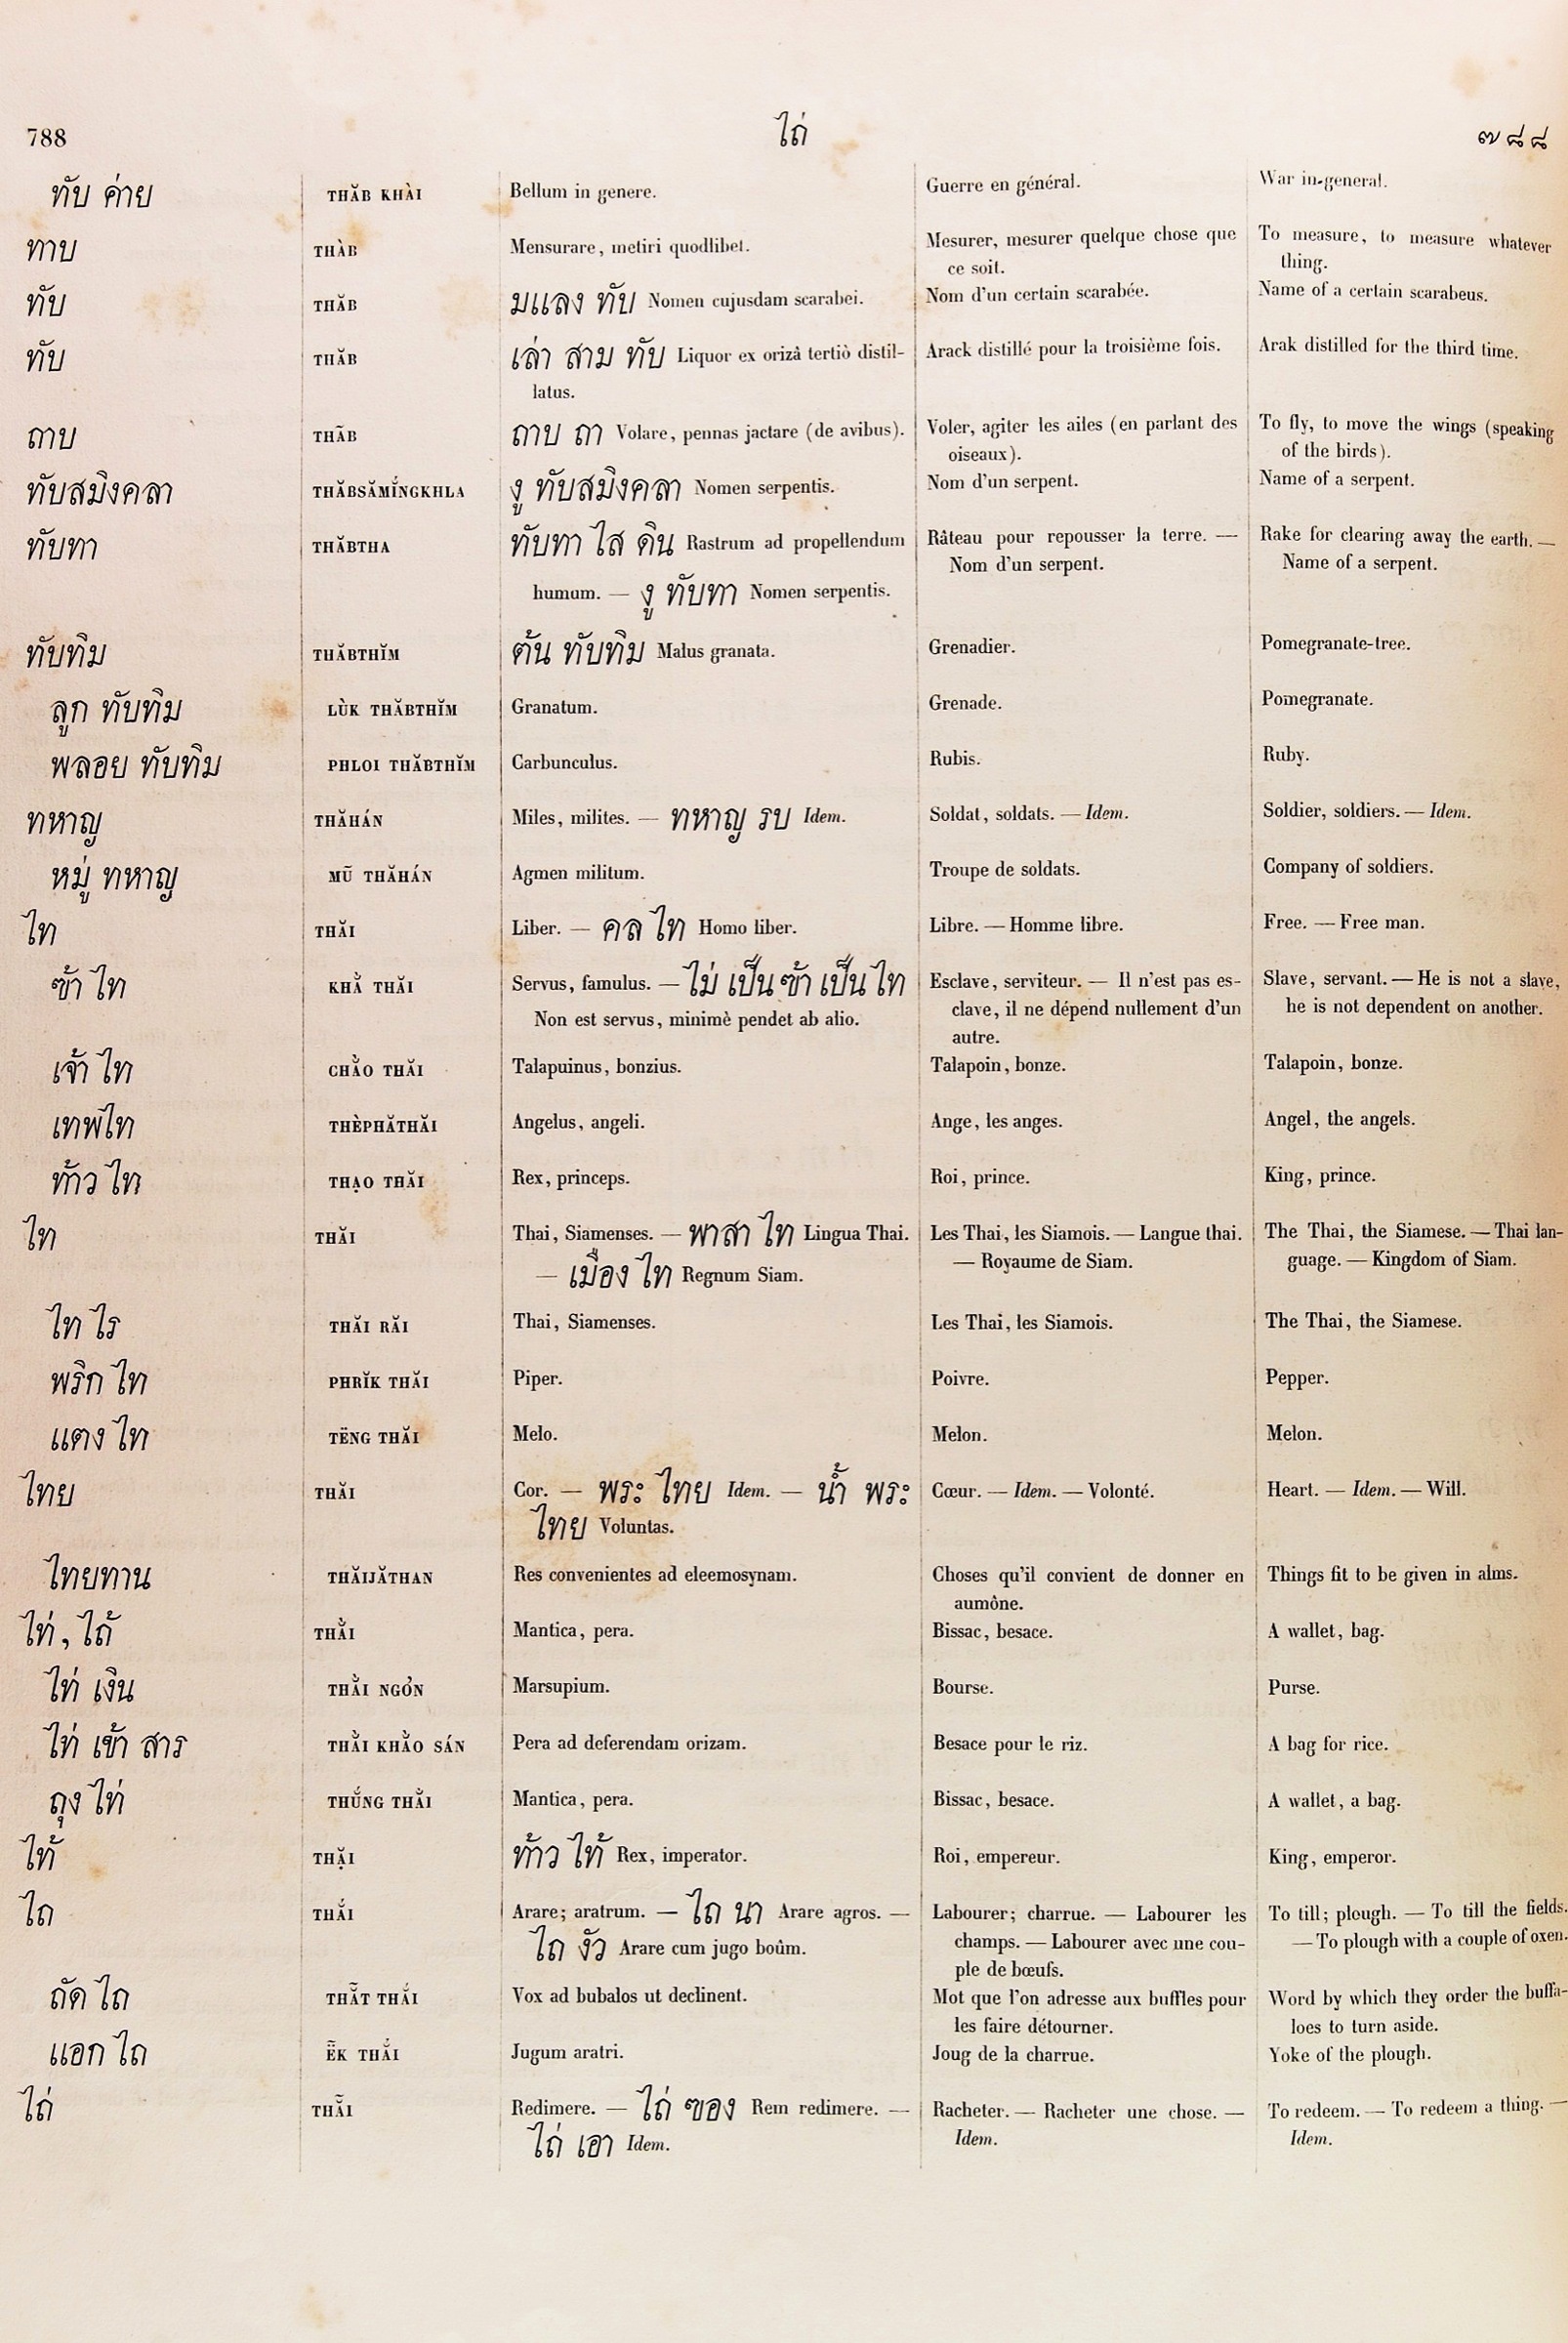 788 ไถ่ ๗๘๘
ทับ ค่าย THĂB KHÀI Bellum in genere. Guerre en général. War in-general.
ทาบ THÀB Mensurare, metiri quodlibet. Mesurer, mesurer quelque chose que To measure, to measure whatever
ce soit. thing.
ทับ THĂB มแลง ทับ Nomen cujusdam scarabei. Nom d'un certain scarabée. Name of a certain scarabeus.
ทับ THĂB เล่า สาม ทับ Liquor ex orizâ tertiò distil- Arack distillé pour la troisième fois. Arak distilled for the third time.
latus.
ถาบ THÃB ถาบ ถา Volare, pennas jactare (de avibus). Voler, agiter les ailes (en parlant des To fly, to move the wings (speaking
oiseaux). of the birds).
ทับสมิงคลา THĂBSĂMĬ́NGKHLA งู ทับสมิงคลา Nomen serpentis. Nom d'un serpent. Name of a serpent.
ทับทา THĂBTHA ทับทา ไส ดิน Rastrum ad propellendum Râteau pour repousser la terre. — Rake for clearing away the earth. —
humum. — งู ทับทา Nomen serpentis. Nom d'un serpent. Name of a serpent.
ทับทิม THĂBTHĬM ต้น ทับทิม Malus granata. Grenadier. Pomegranate-tree.
ลูก ทับทิม LÙK THĂBTHĬM Granatum. Grenade. Pomegranate.
พลอย ทับทิม PHLOI THĂBTHĬM Carbunculus. Rubis. Ruby.
ทหาญ THĂHÁN Miles, milites. — ทหาญ รบ Idem. Soldat, soldats. — Idem. Soldier, soldiers. — Idem.
หมู่ ทหาญ MŨ THĂHÁN Agmen militum. Troupe de soldats. Company of soldiers.
ไท THĂI Liber. — คล ไท Homo liber. Libre. — Homme libre. Free. — Free man.
ฃ้า ไท KHẰ THĂI Servus, famulus. — ไม่ เป็น ฃ้า เป็น ไท Esclave, serviteur. — Il n'est pas es- Slave, servant. — He is not a slave,
Non est servus, minimè pendet ab alio. clave, il ne dépend nullement d'un he is not dependent on another.
autre.
เจ้า ไท CHẰO THĂI Talapuinus, bonzius. Talapoin, bonze. Talapoin, bonze.
เทพไท THÈPHĂTHĂI Angelus, angeli. Ange, les anges. Angel, the angels.
ท้าว ไท THẠO THĂI Rex, princeps. Roi, prince. King, prince.
ไท THĂI Thai, Siamenses. — พาสา ไท Lingua Thai. Les Thai, les Siamois. — Langue thai. The Thai, the Siamese. — Thai lan-
— เมือง ไท Regnum Siam. — Royaume de Siam. guage. — Kingdom of Siam.
ไท ไร THĂI RĂI Thai, Siamenses. Les Thai, les Siamois. The Thai, the Siamese.
พริก ไท PHRĬK THĂI Piper. Poivre. Pepper.
แตง ไท TËNG THĂI Melo. Melon. Melon.
ไทย THĂI Cor. — พระ ไทย Idem. — น้ำ พระ Cœur. — Idem. — Volonté. Heart. — Idem. — Will.
ไทย Voluntas.
ไทยทาน THĂIJĂTHAN Res convenientes ad eleemosynam. Choses qu'il convient de donner en Things fit to be given in alms.
aumône.
ไท่, ไถ้ THẰI Mantica, pera. Bissac, besace. A wallet, bag.
ไท่ เงิน THẰI NGO̓N Marsupium. Bourse. Purse.
ไท่ เข้า สาร THẰI KHẰO SÁN Pera ad deferendam orizam. Besace pour le riz. A bag for rice.
ถุง ไท่ THŬ́NG THẰI Mantica, pera. Bissac, besace. A wallet, a bag.
ไท้ THẶI ท้าว ไท้ Rex, imperator. Roi, empereur. King, emperor.
ไถ THẮI Arare; aratrum. — ไถ นา Arare agros. — Labourer; charrue. — Labourer les To till; plough. — To till the fields.
ไถ งัว Arare cum jugo boûm. champs. — Labourer avec une cou- — To plough with a couple of oxen.
ple de bœufs.
ถัด ไถ THẴT THẮI Vox ad bubalos ut declinent. Mot que l'on adresse aux buffles pour Word by which they order the buffa-
les faire détourner. loes to turn aside.
แอก ไถ Ë̃K THẮI Jugum aratri. Joug de la charrue. Yoke of the plough.
ไถ่ THẴI Redimere. — ไถ่ ฃอง Rem redimere. — Racheter. — Racheter une chose. — To redeem. — To redeem a thing. —
ไถ่ เอา Idem. Idem. Idem.